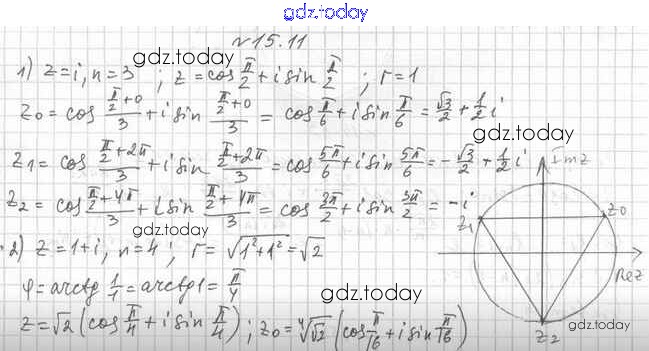 gdz.today
№15.11
gdz.today
1) z=i, n=3 ; z=cos π/2 + i sin π/2 ; r=1
z0 = cos (π/2+0)/3 + i sin (π/2+0)/3 = cos π/6 + i sin π/6 = √3/2 + 1/2 i
gdz.today
z1 = cos (π/2+2π)/3 + i sin (π/2+2π)/3 = cos 5π/6 + i sin 5π/6 = -√3/2 + 1/2 i
Imz
z2 = cos (π/2+4π)/3 + i sin (π/2+4π)/3 = cos 3π/2 + i sin 3π/2 = -i
z1 z0
gdz.today
2) z=1+i, n=4 ; r=√(1²+1²)=√2
Rez
φ=arctg 1/1 = arctg1 = π/4
gdz.today
z=√2 (cos π/4 + i sin π/4) ; z0=⁴√√2 (cos π/16 + i sin π/16)
z2
gdz.today